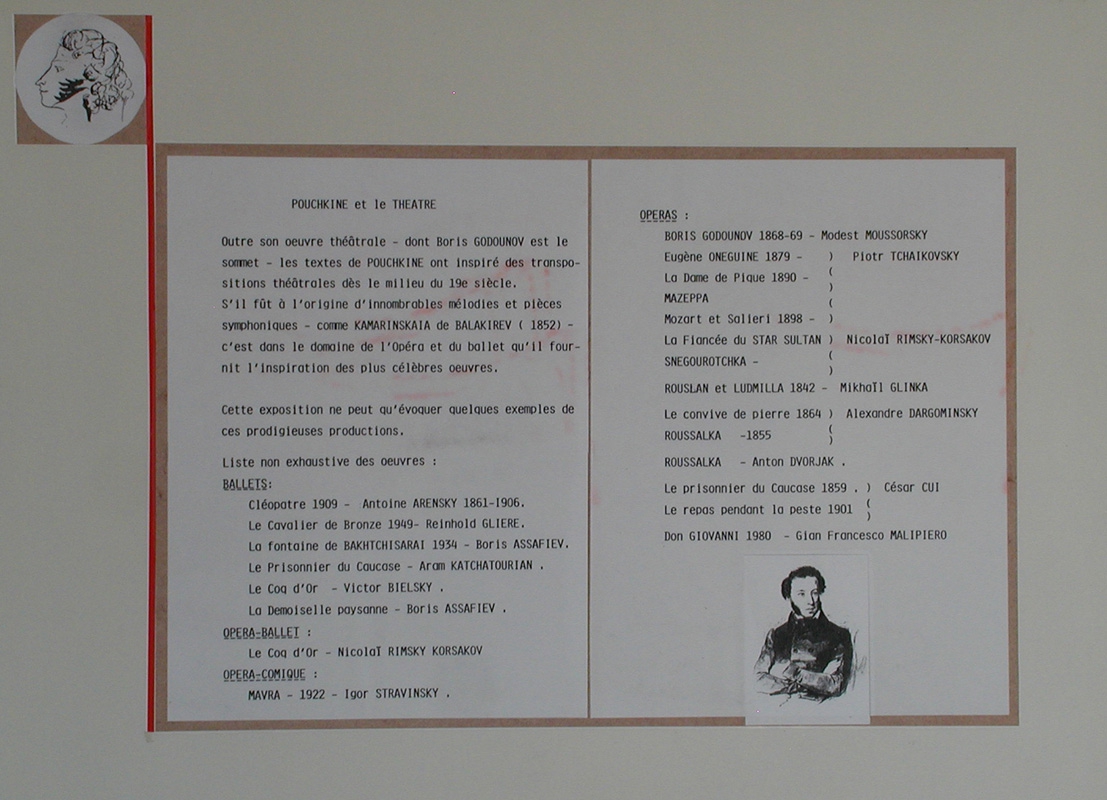 POUCHKINE et le THEATRE
Outre son oeuvre théâtrale - dont Boris GODOUNOV est le
sommet - les textes de POUCHKINE ont inspiré des transpo-
sitions théâtrales dès le milieu du 19e siècle.
S'il fût à l'origine d'innombrables mélodies et pièces
symphoniques - comme KAMARINSKAIA de BALAKIREV ( 1852) -
c'est dans le domaine de l'Opéra et du ballet qu'il four-
nit l'inspiration des plus célèbres oeuvres.
Cette exposition ne peut qu'évoquer quelques exemples de
ces prodigieuses productions.
Liste non exhaustive des oeuvres :
BALLETS:
Cléopatre 1909 - Antoine ARENSKY 1861-1906.
Le Cavalier de Bronze 1949- Reinhold GLIERE.
La fontaine de BAKHTCHISARAI 1934 - Boris ASSAFIEV.
Le Prisonnier du Caucase - Aram KATCHATOURIAN .
Le Coq d'Or - Victor BIELSKY .
La Demoiselle paysanne - Boris ASSAFIEV .
OPERA-BALLET :
Le Coq d'Or - Nicolaï RIMSKY KORSAKOV
OPERA-COMIQUE :
MAVRA - 1922 - Igor STRAVINSKY .
OPERAS :
BORIS GODOUNOV 1868-69 - Modest MOUSSORSKY
Eugène ONEGUINE 1879 - ) Piotr TCHAIKOVSKY
(
La Dame de Pique 1890 -
)
MAZEPPA
(
Mozart et Salieri 1898 - )
La Fiancée du STAR SULTAN ) Nicolaï RIMSKY-KORSAKOV
(
SNEGOUROTCHKA -
)
ROUSLAN et LUDMILLA 1842 - Mikhaïl GLINKA
Le convive de pierre 1864 ) Alexandre DARGOMINSKY
(
ROUSSALKA -1855
)
ROUSSALKA - Anton DVORJAK .
Le prisonnier du Caucase 1859 . ) César CUI
(
Le repas pendant la peste 1901
)
Don GIOVANNI 1980 - Gian Francesco MALIPIERO